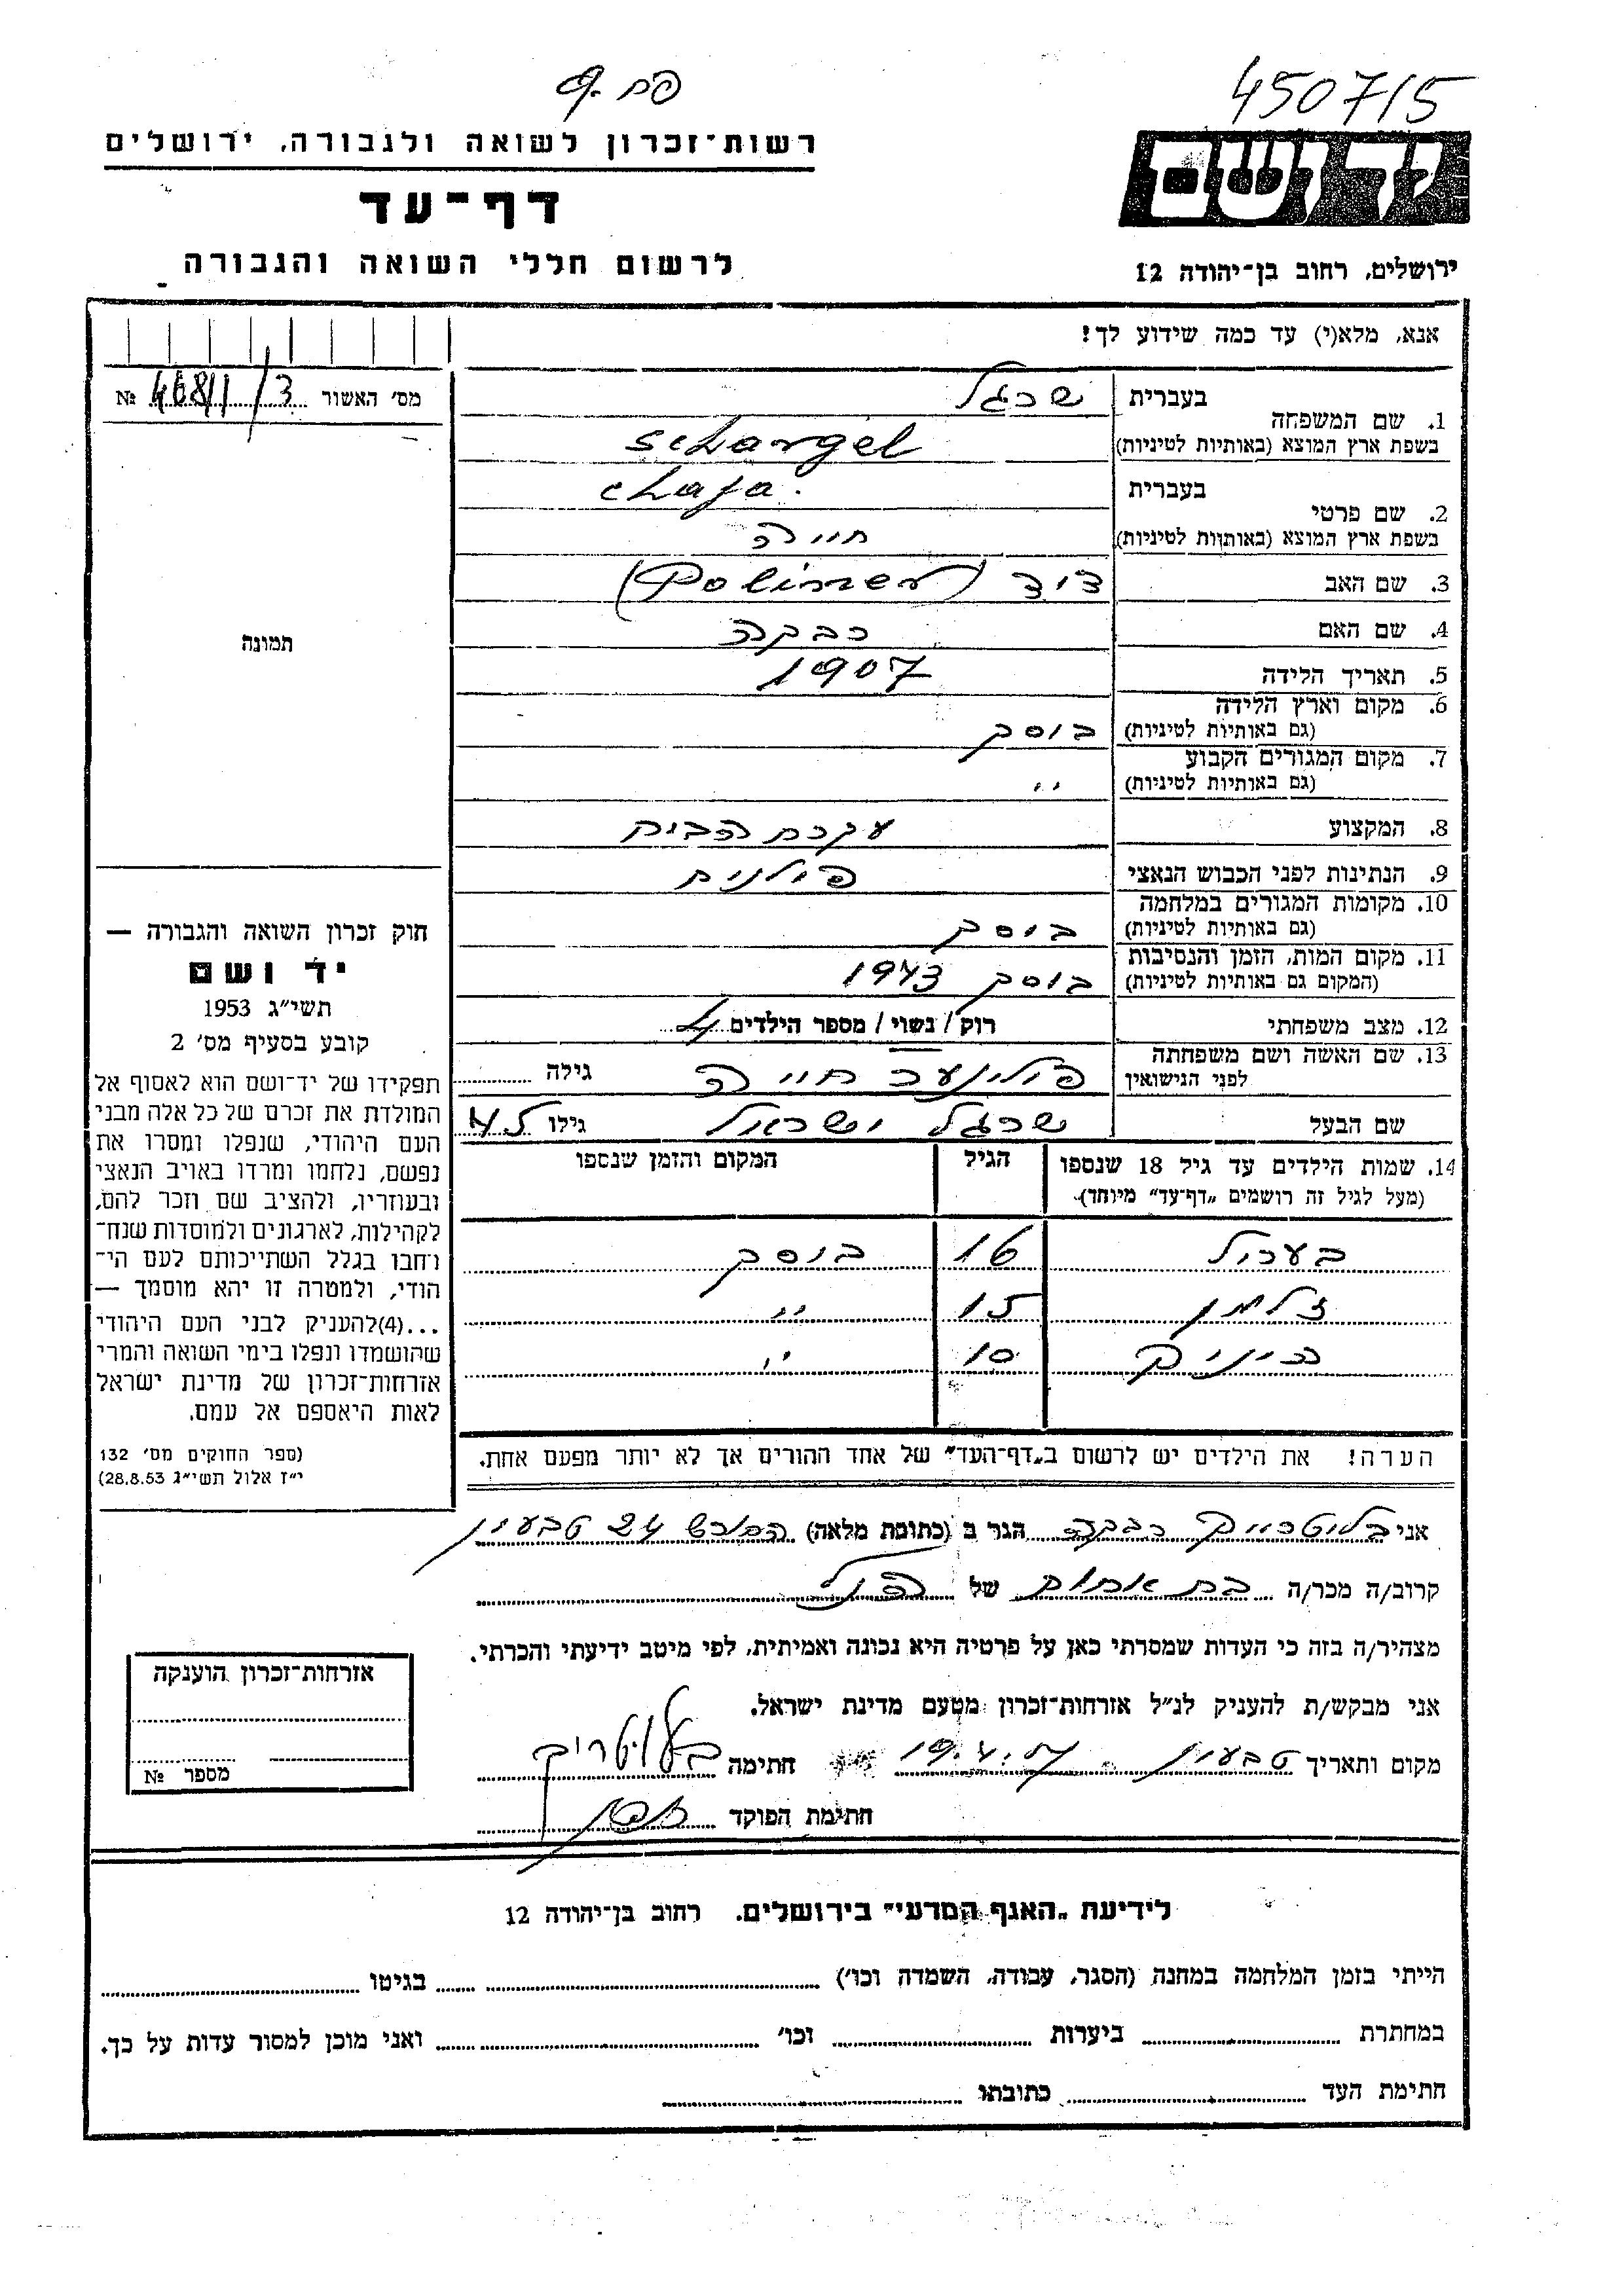 450715
רשות־זכרון לשואה ולגבורה, ירושלים
יד ושם
דף־עד
לרשום חללי השואה והגבורה
ירושלים, רחוב בן־יהודה 12
אנא, מלא(י) עד כמה שידוע לך!
מס׳ האשור 468/1/3 №
1. שם המשפחה
בעברית שרגל
בשפת ארץ המוצא (באותיות לטיניות) Schargel
2. שם פרטי
בעברית chaja
בשפת ארץ המוצא (באותיות לטיניות) חייה
3. שם האב דוד (Poliner)
4. שם האם רבקה
5. תאריך הלידה 1907
6. מקום וארץ הלידה
(גם באותיות לטיניות) בוסק
7. מקום המגורים הקבוע
(גם באותיות לטיניות) ״
8. המקצוע עקרת הבית
9. הנתינות לפני הכבוש הנאצי פולנית
10. מקומות המגורים במלחמה
(גם באותיות לטיניות) בוסק
11. מקום המות, הזמן והנסיבות
(המקום גם באותיות לטיניות) בוסק 1943
12. מצב משפחתי רוק / נשוי / מספר הילדים 4
13. שם האשה ושם משפחתה
לפני הנישואין פולינער חייה גילה
שם הבעל שרגל ישראל גילו 45
14. שמות הילדים עד גיל 18 שנספו הגיל המקום והזמן שנספו
(מעל לגיל זה רושמים „דף־עד״ מיוחד).
בערל 16 בוסק
זלמן 15 ״
הניק 10 ״
הערה! את הילדים יש לרשום ב„דף־העד״ של אחד ההורים אך לא יותר מפעם אחת.
תמונה
חוק זכרון השואה והגבורה —
יד ושם
תשי״ג 1953
קובע בסעיף מס׳ 2
תפקידו של יד־ושם הוא לאסוף אל
המולדת את זכרם של כל אלה מבני
העם היהודי, שנפלו ומסרו את
נפשם, נלחמו ומרדו באויב הנאצי
ובעוזריו, ולהציב שם וזכר להם,
לקהילות, לארגונים ולמוסדות שנח־
רחבו בגלל השתייכותם לעם הי־
הודי, ולמטרה זו יהא מוסמך —
...(4)להעניק לבני העם היהודי
שהושמדו ונפלו בימי השואה והמרי
אזרחות־זכרון של מדינת ישראל
לאות היאספם אל עמם.
(ספר החוקים מס׳ 132
י״ז אלול תשי״ג 28.8.53)
אני רבקה הגר ב (כתובת מלאה) החורש 24 טבעון
קרוב/ה מכר/ה בת אחות של הנ״ל
מצהיר/ה בזה כי העדות שמסרתי כאן על פרטיה היא נכונה ואמיתית, לפי מיטב ידיעתי והכרתי.
אני מבקש/ת להעניק לנ״ל אזרחות־זכרון מטעם מדינת ישראל.
מקום ותאריך טבעון חתימה
חתימת הפוקד
אזרחות־זכרון הוענקה
מספר №
לידיעת „האגף המדעי״ בירושלים. רחוב בן־יהודה 12
הייתי בזמן המלחמה במחנה (הסגר, עבודה, השמדה וכו׳) בגיטו
במחתרת ביערות וכו׳ ואני מוכן למסור עדות על כך.
חתימת העד כתובתו